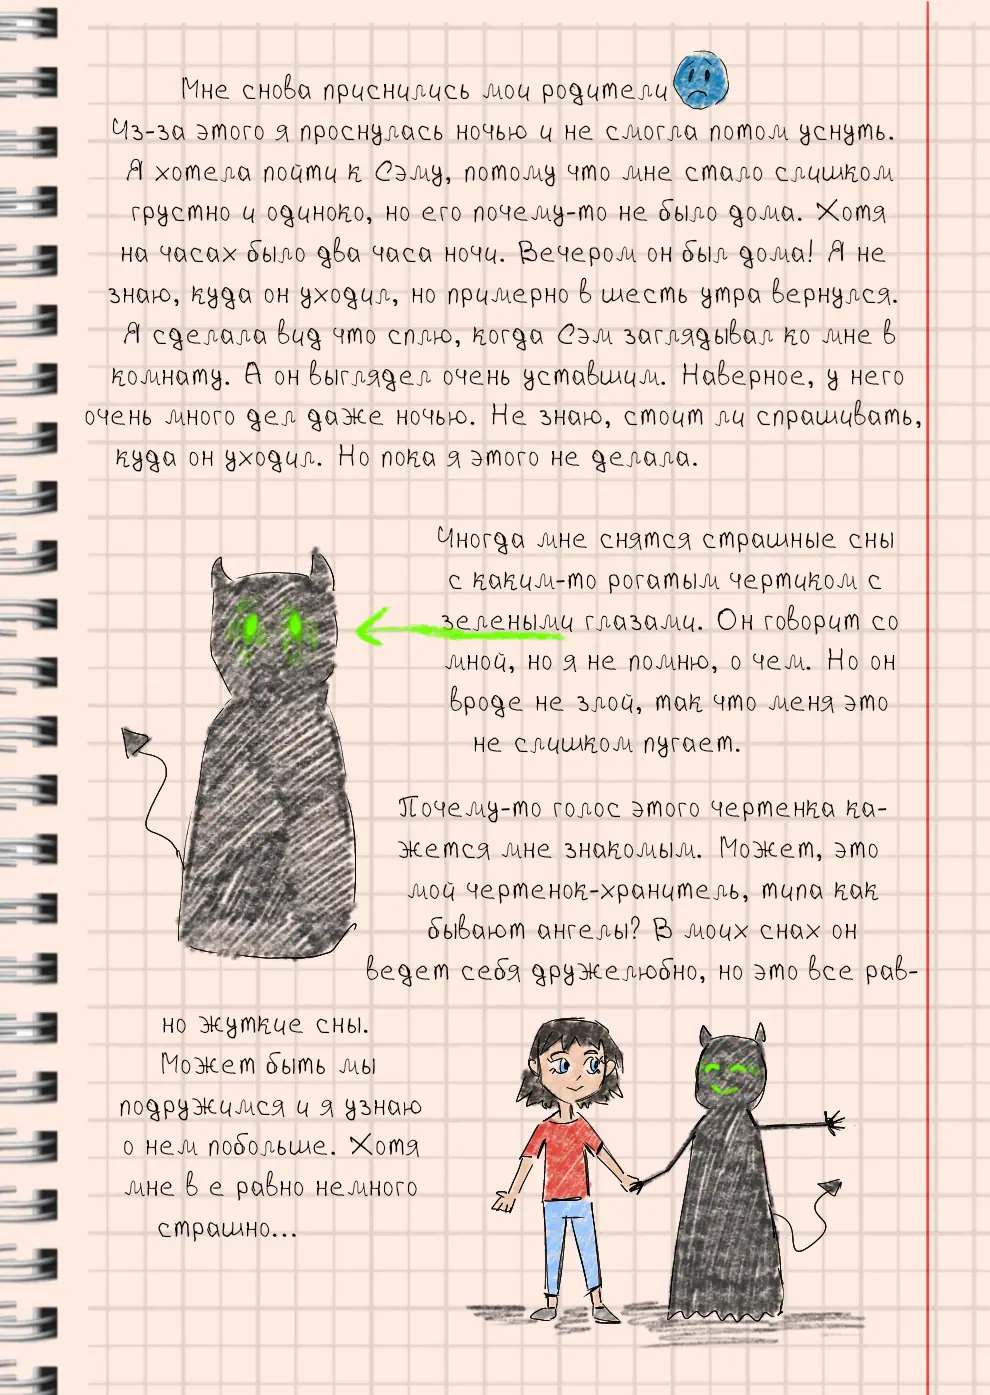 Мне снова приснились мои родители
Из-за этого я проснулась ночью и не смогла потом уснуть.
Я хотела пойти к Сэму, потому что мне стало слишком
грустно и одиноко, но его почему-то не было дома. Хотя
на часах было два часа ночи. Вечером он был дома! Я не
знаю, куда он уходил, но примерно в шесть утра вернулся.
Я сделала вид что сплю, когда Сэм заглядывал ко мне в
комнату. А он выглядел очень уставшим. Наверное, у него
очень много дел даже ночью. Не знаю, стоит ли спрашивать,
куда он уходил. Но пока я этого не делала.
Иногда мне снятся страшные сны
с каким-то рогатым чертиком с
зелеными глазами. Он говорит со
мной, но я не помню, о чем. Но он
вроде не злой, так что меня это
не слишком пугает.
Почему-то голос этого чертенка ка-
жется мне знакомым. Может, это
мой чертенок-хранитель, типа как
бывают ангелы? В моих снах он
ведет себя дружелюбно, но это все рав-
но жуткие сны.
Может быть мы
подружимся и я узнаю
о нем побольше. Хотя
мне в е равно немного
страшно...